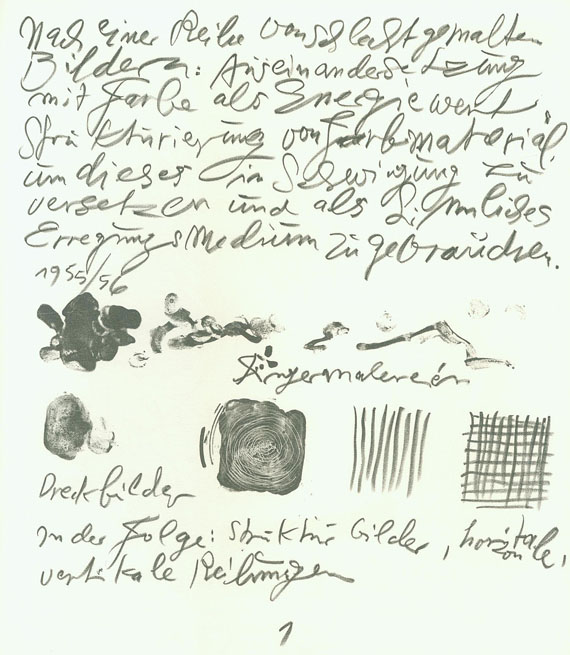 Nach einer Reihe von schlecht gemalten
Bildern: Auseinandersetzung
mit Farbe als Energiewert
Strukturierung von Farbmaterial,
um dieses in Schwingung zu
versetzen und als sinnliches
Erregungsmedium zu gebrauchen.
1955/56
Fingermalereien
Dreckbilder
In der Folge: Strukturbilder, horizontale,
vertikale Reihungen
1